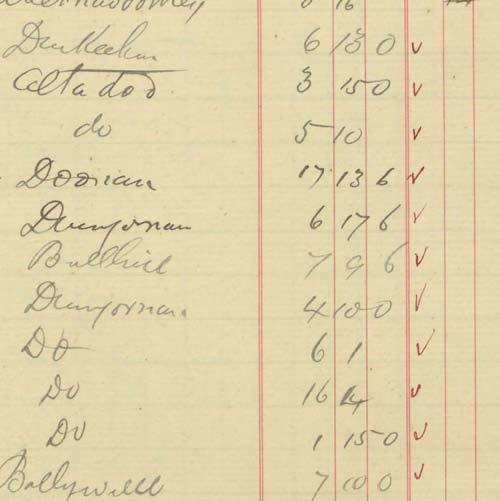 6 13 0
Altadoo 3 15 0
do 5 10
Doonan 17 13 6
Dungorman 6 17 6
Bullhill 7 9 6
Dungorman 4 10 0
Do 6 1
Do 16 4
Do 1 15 0
Ballywell 7 10 0